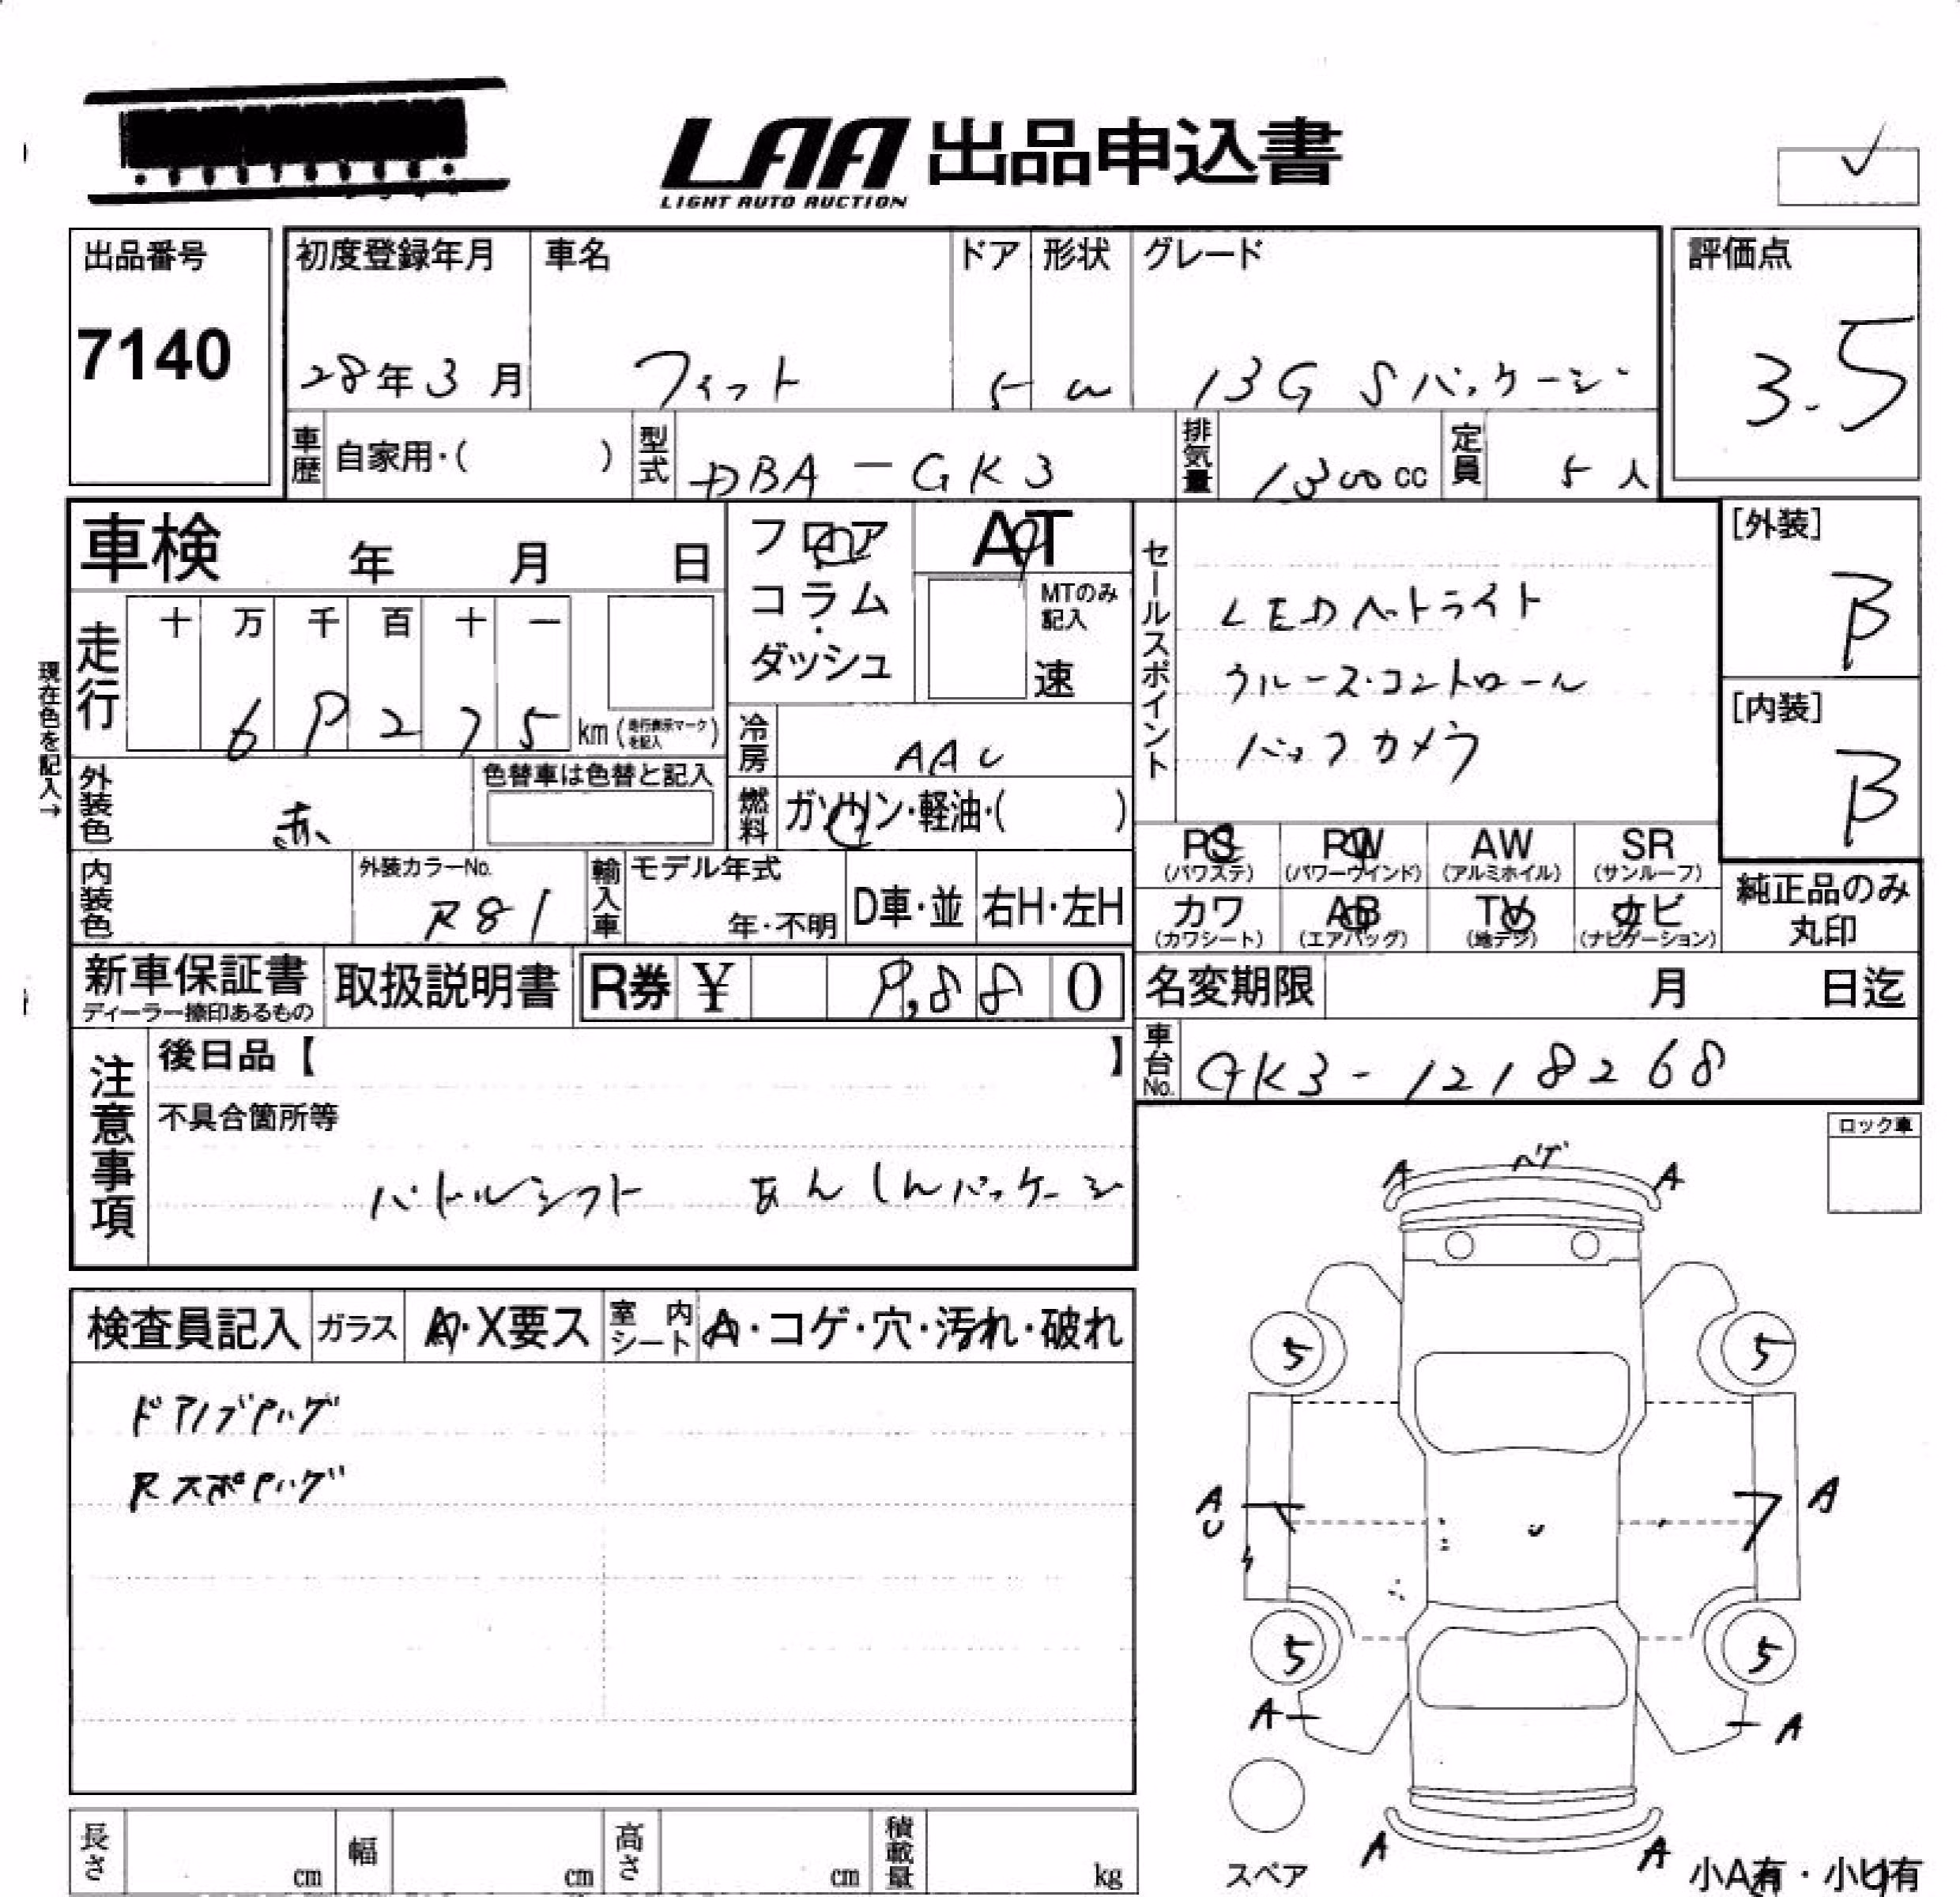 LAA 出品申込書
LIGHT AUTO AUCTION
出品番号
7140
初度登録年月
28年3月
車名
フィット
ドア
5
形状
W
グレード
13G Sパッケージ
評価点
3.5
車歴
自家用・( )
型式
DBA-GK3
排気量
1300cc
定員
5人
車検 年 月 日
フロア
コラム・
ダッシュ
AT
MTのみ
記入
速
セールスポイント
LEDヘットライト
クルースコントロール
バックカメラ
[外装]
B
[内装]
B
現在色を記入→
走行
十 万 千 百 十 一
6 9 2 7 5 km(走行表示マークを記入)
冷房
AAC
燃料
ガソリン・軽油・( )
外装色
赤
色替車は色替と記入
内装色
外装カラーNo.
R81
輸入車
モデル年式
年・不明
D車・並
右H・左H
PS
(パワステ)
PW
(パワーウインド)
AW
(アルミホイル)
SR
(サンルーフ)
カワ
(カワシート)
AB
(エアバッグ)
TV
(地デジ)
ナビ
(ナビゲーション)
純正品のみ
丸印
新車保証書
ディーラー捺印あるもの
取扱説明書
R券 ¥ 9,880
名変期限 月 日迄
車台No.
GK3-1218268
注意事項
後日品【 】
不具合箇所等
パドルシフト あんしんパッケージ
ロック車
検査員記入
ガラス
A・X要ス
室内シート
A・コゲ・穴・汚れ・破れ
ドアノブPハゲ
RスポPハゲ
ハゲ
A A
5 5
A
U
A
U
5 5
A A
A A
スペア
小A有・小U有
長さ cm
幅 cm
高さ cm
積載量 kg